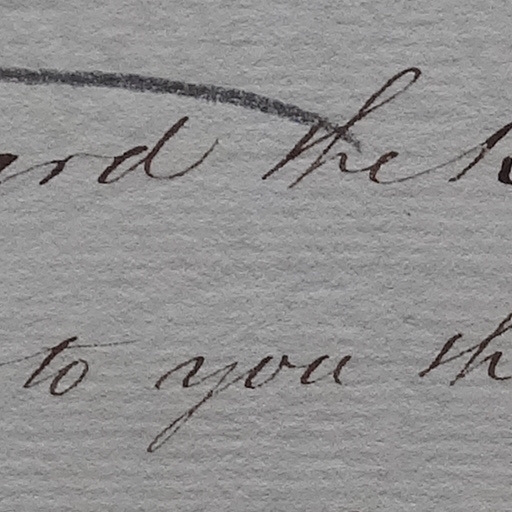 ard the
to you th